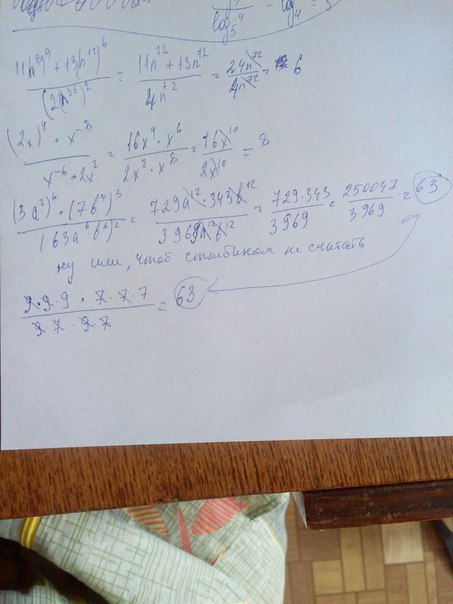 log₅4 - log₄ = 3
(11(n⁸)⁹ + 13(n¹²)⁶)/(2(n³⁶))² = (11n⁷² + 13n⁷²)/4n⁷² = 24n⁷²/4n⁷² = 6
((2x)⁴ · x⁻⁸)/(x⁻⁶ · 2x²) = (16x⁴ · x⁶)/(2x² · x⁸) = 16x¹⁰/2x¹⁰ = 8
((3a²)⁶ · (7b⁴)³)/(63a⁶b⁶)² = (729a¹² · 343b¹²)/(3969a¹²b¹²) = (729 · 343)/3969 = 250047/3969 = 63
ну или, чтоб столбиком не считать
(9 · 9 · 9 · 7 · 7 · 7)/(9 · 7 · 9 · 7) = 63